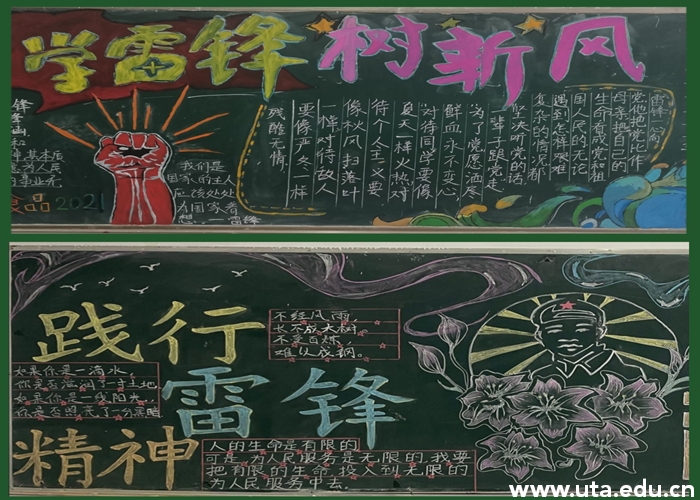 学雷锋 树新风
党他把党比作
母亲把自己的
生命看成党和祖
国人民的无论
遇到怎样艰难
复杂的情况都
坚决听党的话
一辈子跟党走
为了党愿洒尽
鲜血永不变心
对待同学要像
夏天一样火热对
待个人主义要
像秋风扫落叶
一样对待敌人
要像严冬一样
残酷无情。
我们是
国家的主人
应该处处
为国家着
想。—雷锋
2021
践行
雷锋
精神
不经风雨,
长不成大树,
不受百炼,
难以成钢。
如果你是一滴水,
你是否滋润了一寸土地
如果你是一线阳光,
你是否照亮了一分黑暗
人的生命是有限的
可是,为人民服务是无限的,我要
把有限的生命,投入到无限的
为人民服务中去。
www.uta.edu.cn